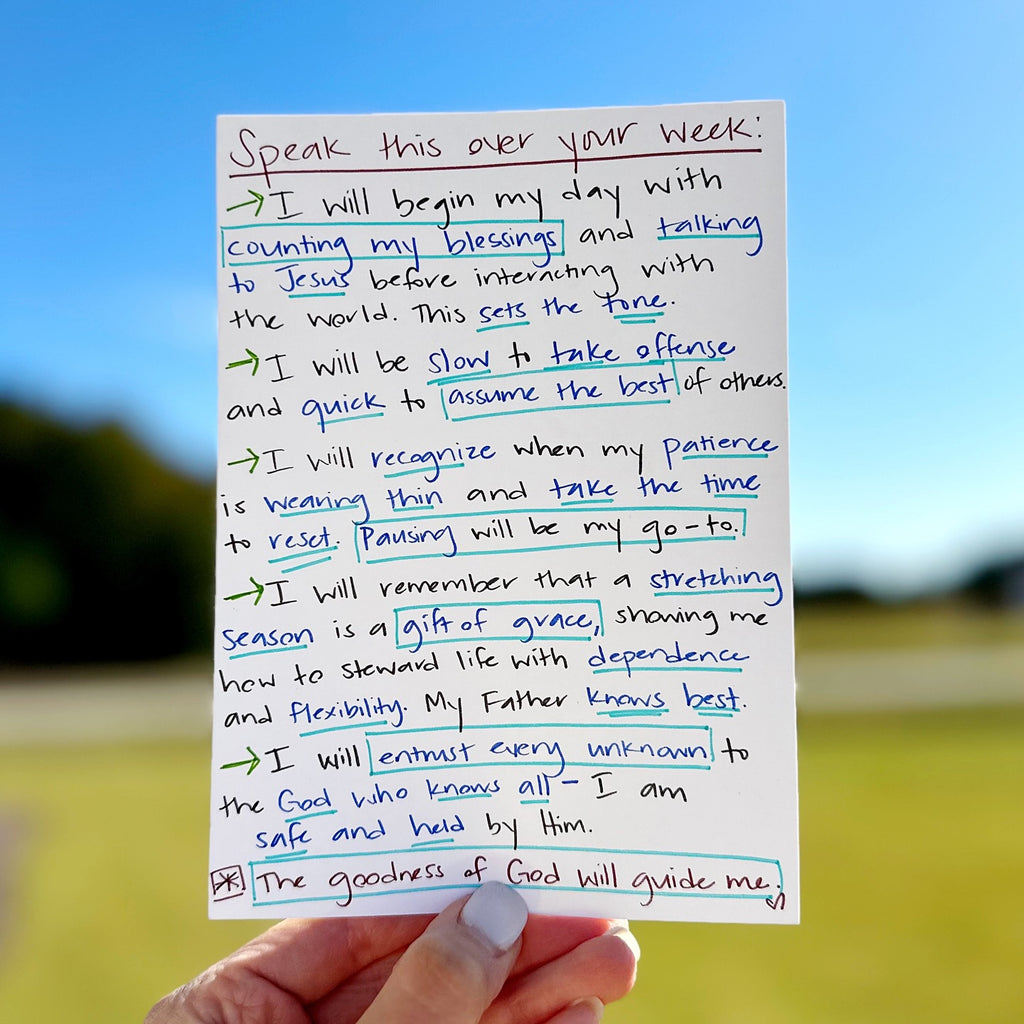 Speak this over your week:
→ I will begin my day with
counting my blessings and talking
to Jesus before interacting with
the world. This sets the tone.
→ I will be slow to take offense
and quick to assume the best of others.
→ I will recognize when my patience
is wearing thin and take the time
to reset. Pausing will be my go-to.
→ I will remember that a stretching
season is a gift of grace, showing me
how to steward life with dependence
and flexibility. My Father knows best.
→ I will entrust every unknown to
the God who knows all - I am
safe and held by Him.
* The goodness of God will guide me.